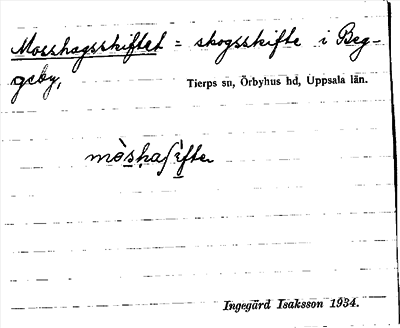 Mosshagsskiftet = skogsskifte i Beg-
geby,
Tierps sn, Örbyhus hd, Uppsala län.
mòsḥaʃèfter
Ingegärd Isaksson 1934.